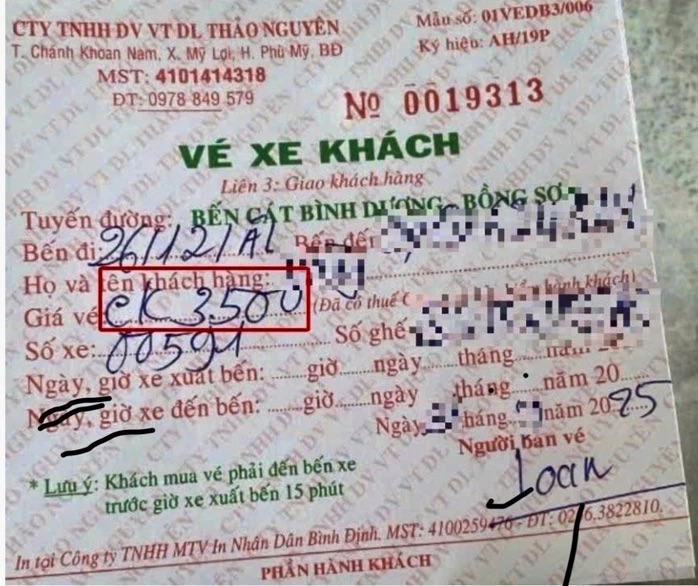 CTY TNHH DV VT DL THẢO NGUYÊN
T. Chánh Khoan Nam, X. Mỹ Lợi, H. Phù Mỹ, BĐ
MST: 4101414318
ĐT: 0978 849 579
Mẫu số: 01VEDB3/006
Ký hiệu: AH/19P
Nº 0019313
VÉ XE KHÁCH
Liên 3: Giao khách hàng
Tuyến đường: BẾN CÁT BÌNH DƯƠNG - BỒNG SƠ
Bến đi: 26/12/AL Bến đến
Họ và tên khách hàng:
Giá vé CK 3.500 (Đã có thuế hành khách)
Số xe: 00591 Số ghế
Ngày, giờ xe xuất bến: giờ ngày tháng năm 20
Ngày, giờ xe đến bến: giờ ngày tháng năm 20
Ngày tháng năm 2025
Người bán vé
Loan
* Lưu ý: Khách mua vé phải đến bến xe
trước giờ xe xuất bến 15 phút
In tại Công ty TNHH MTV In Nhân Dân Bình Định. MST: 4100259476 - ĐT: 3822810.
PHẦN HÀNH KHÁCH